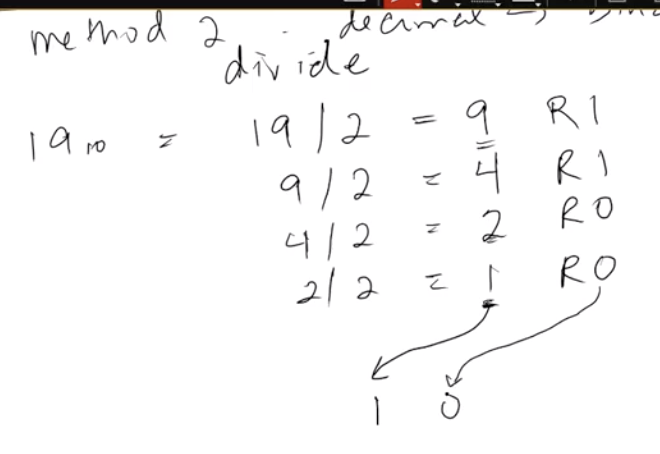 method 2 decimal →
divide
19₁₀ = 19/2 = 9 R1
9/2 = 4 R1
4/2 = 2 R0
2/2 = 1 R0
1 0